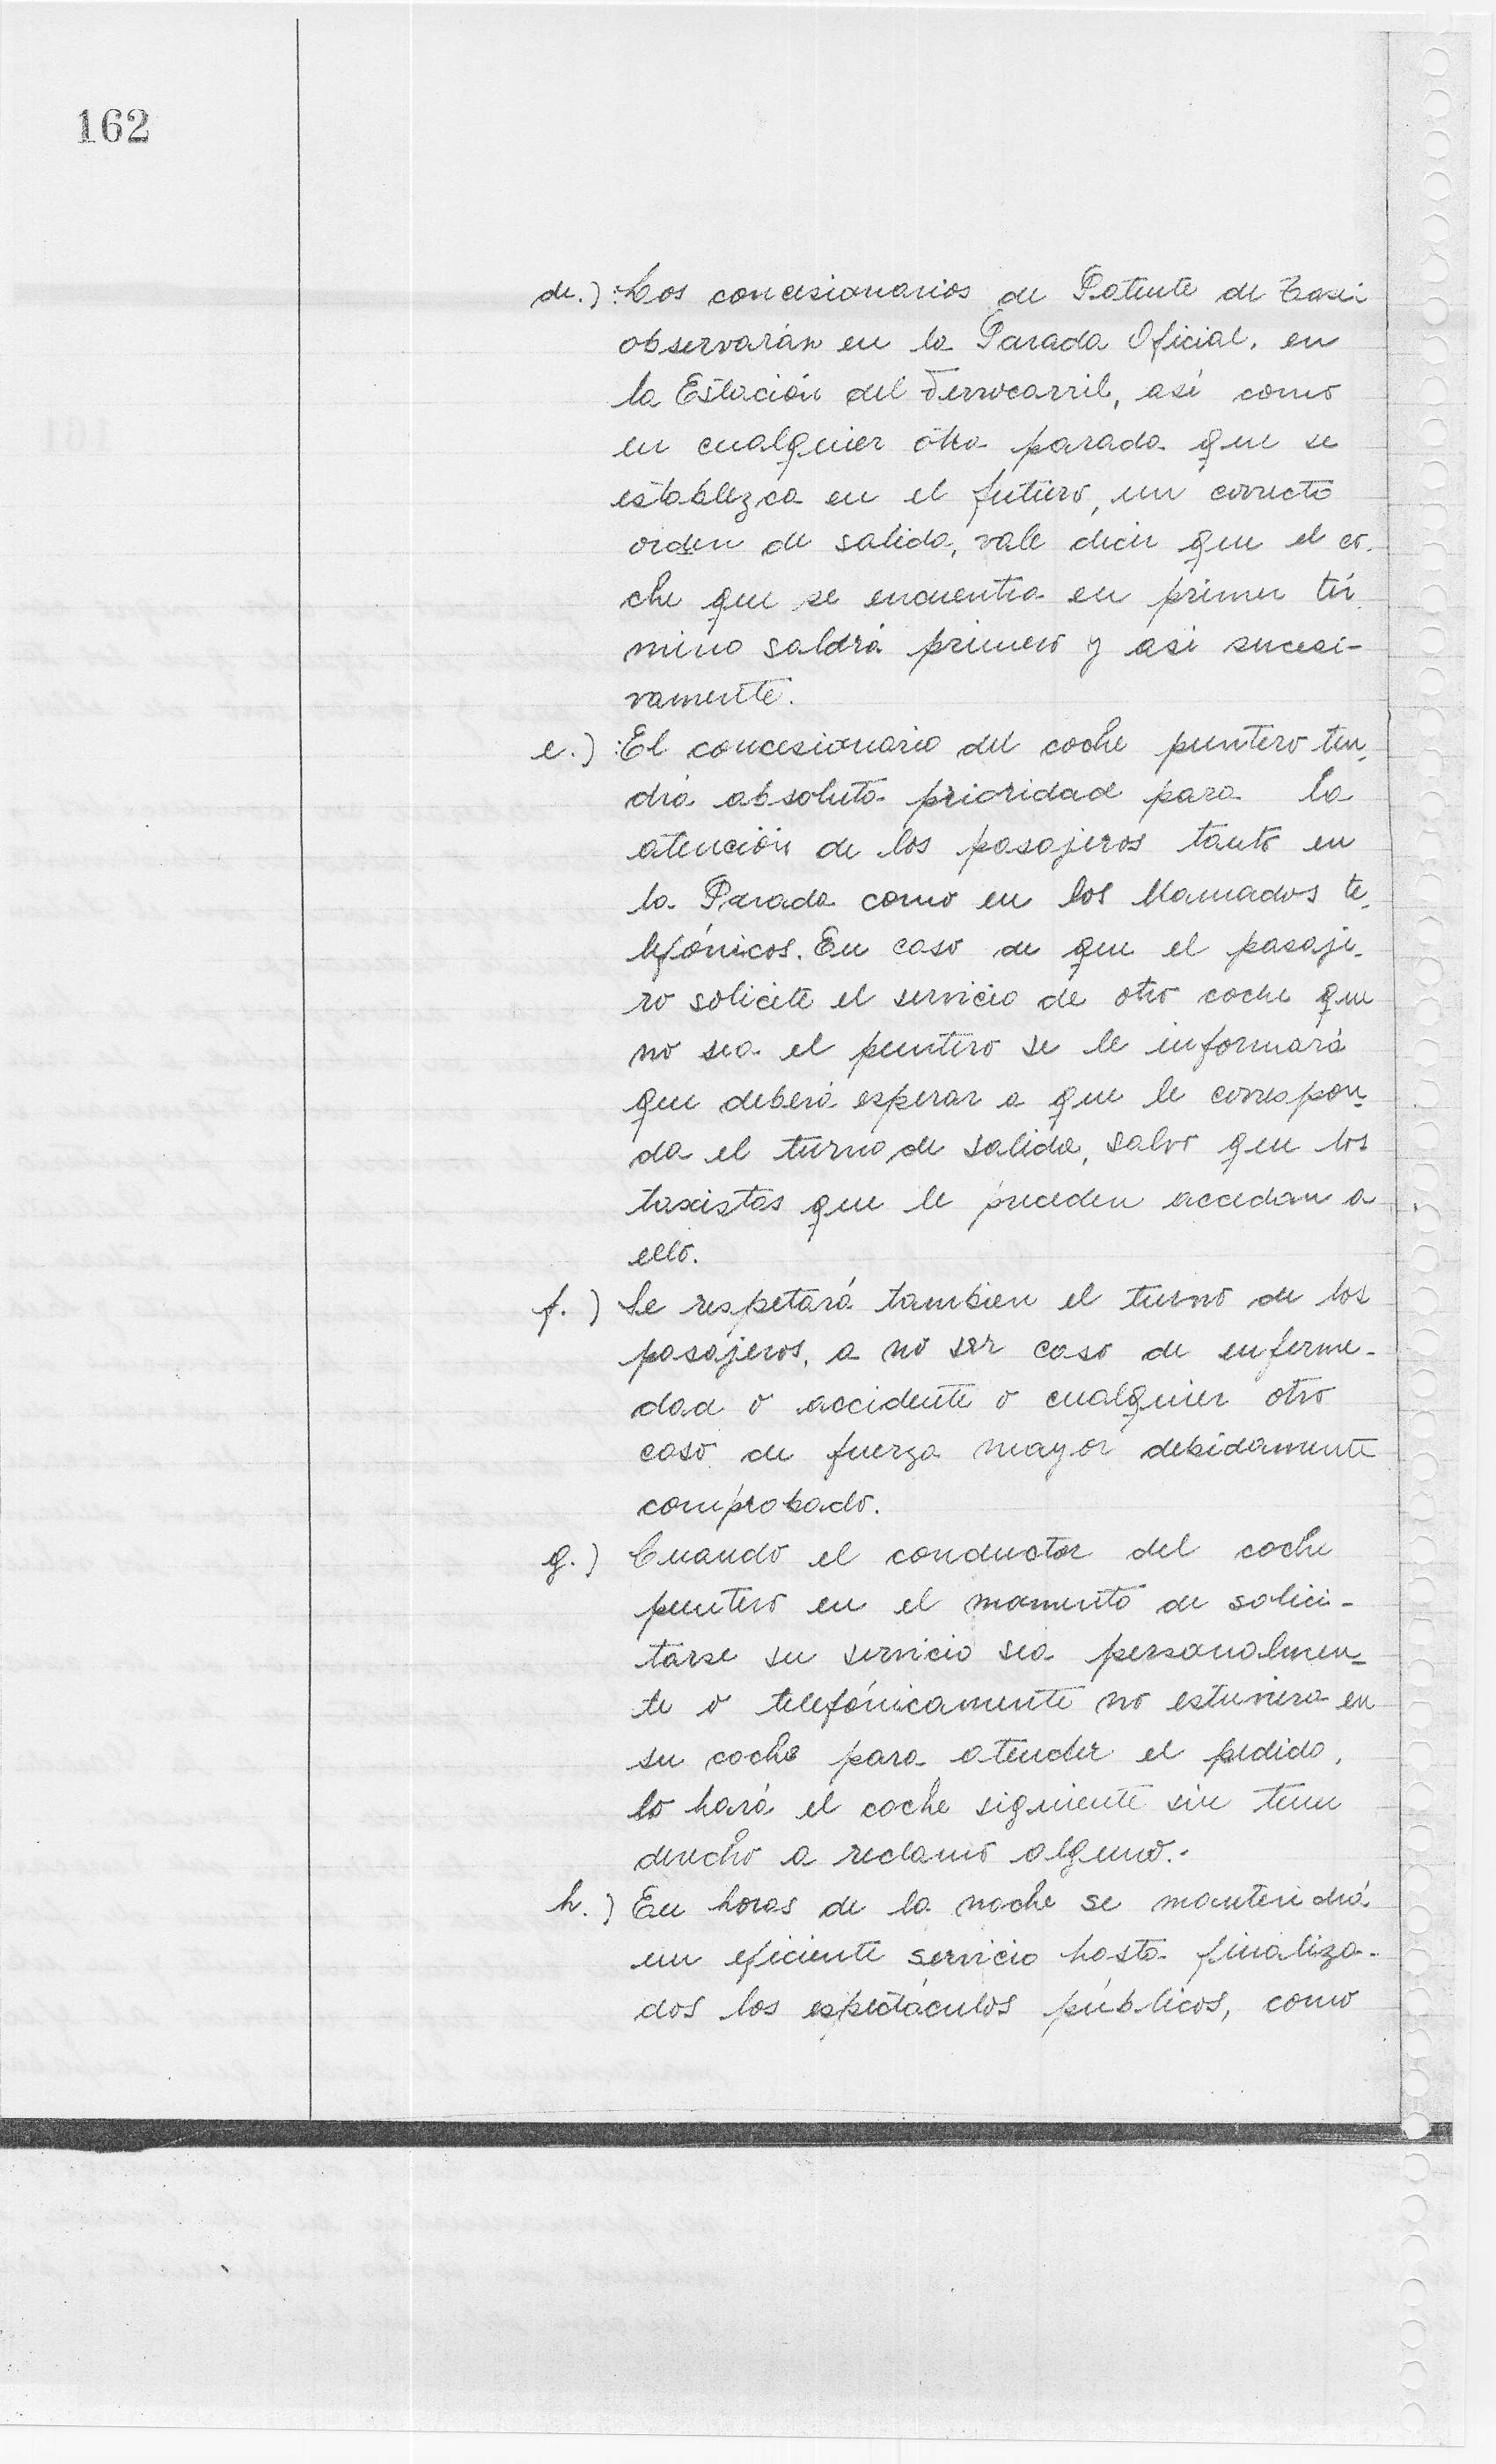 162
de.) :Los concesionarios de Patente de Taxi
observarán en la Parada Oficial, en
la Estación del Ferrocarril, asi como
en cualquier otra parada que se
establezca en el futuro, un correcto
orden de salida, vale decir que el co-
che que se encuentra en primer tér
mino saldrá primero y asi sucesi-
vamente.
e.) :El concesionario del coche puntero ten-
drá absoluta prioridad para la
atención de los pasajeros tanto en
la Parada como en los llamados te-
lefónicos. En caso de que el pasaje-
ro solicite el servicio de otro coche que
no sea el puntero se le informará
que deberá esperar a que le correspon-
da el turno de salida, salvo que los
taxistas que le preceden accedan a
ello.
f.) Se respetará tambien el turno de los
pasajeros, a no ser caso de enferme-
dad o accidente o cualquier otro
caso de fuerza mayor debidamente
comprobado.
g.) Cuando el conductor del coche
puntero en el momento de solici-
tarse su servicio sea personalmen-
te o telefónicamente no estuviera en
su coche para atender el pedido,
lo hará el coche siguiente sin tener
derecho a reclamo alguno.-
h.) En horas de la noche se mantendrá
un eficiente servicio hasta finaliza-
dos los espectáculos públicos, como